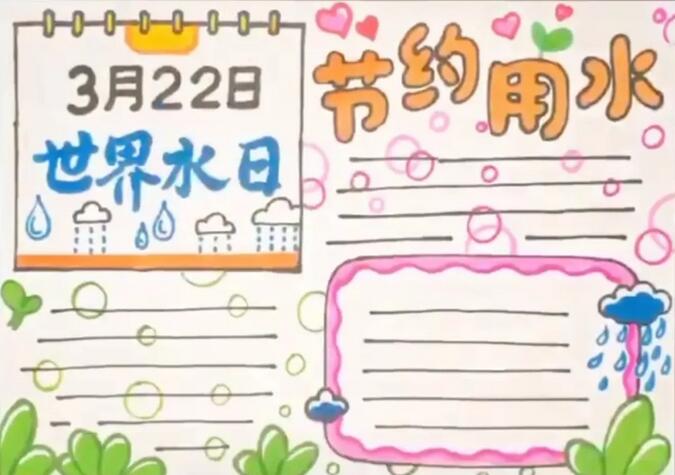 3月22日
世界水日
节约用水